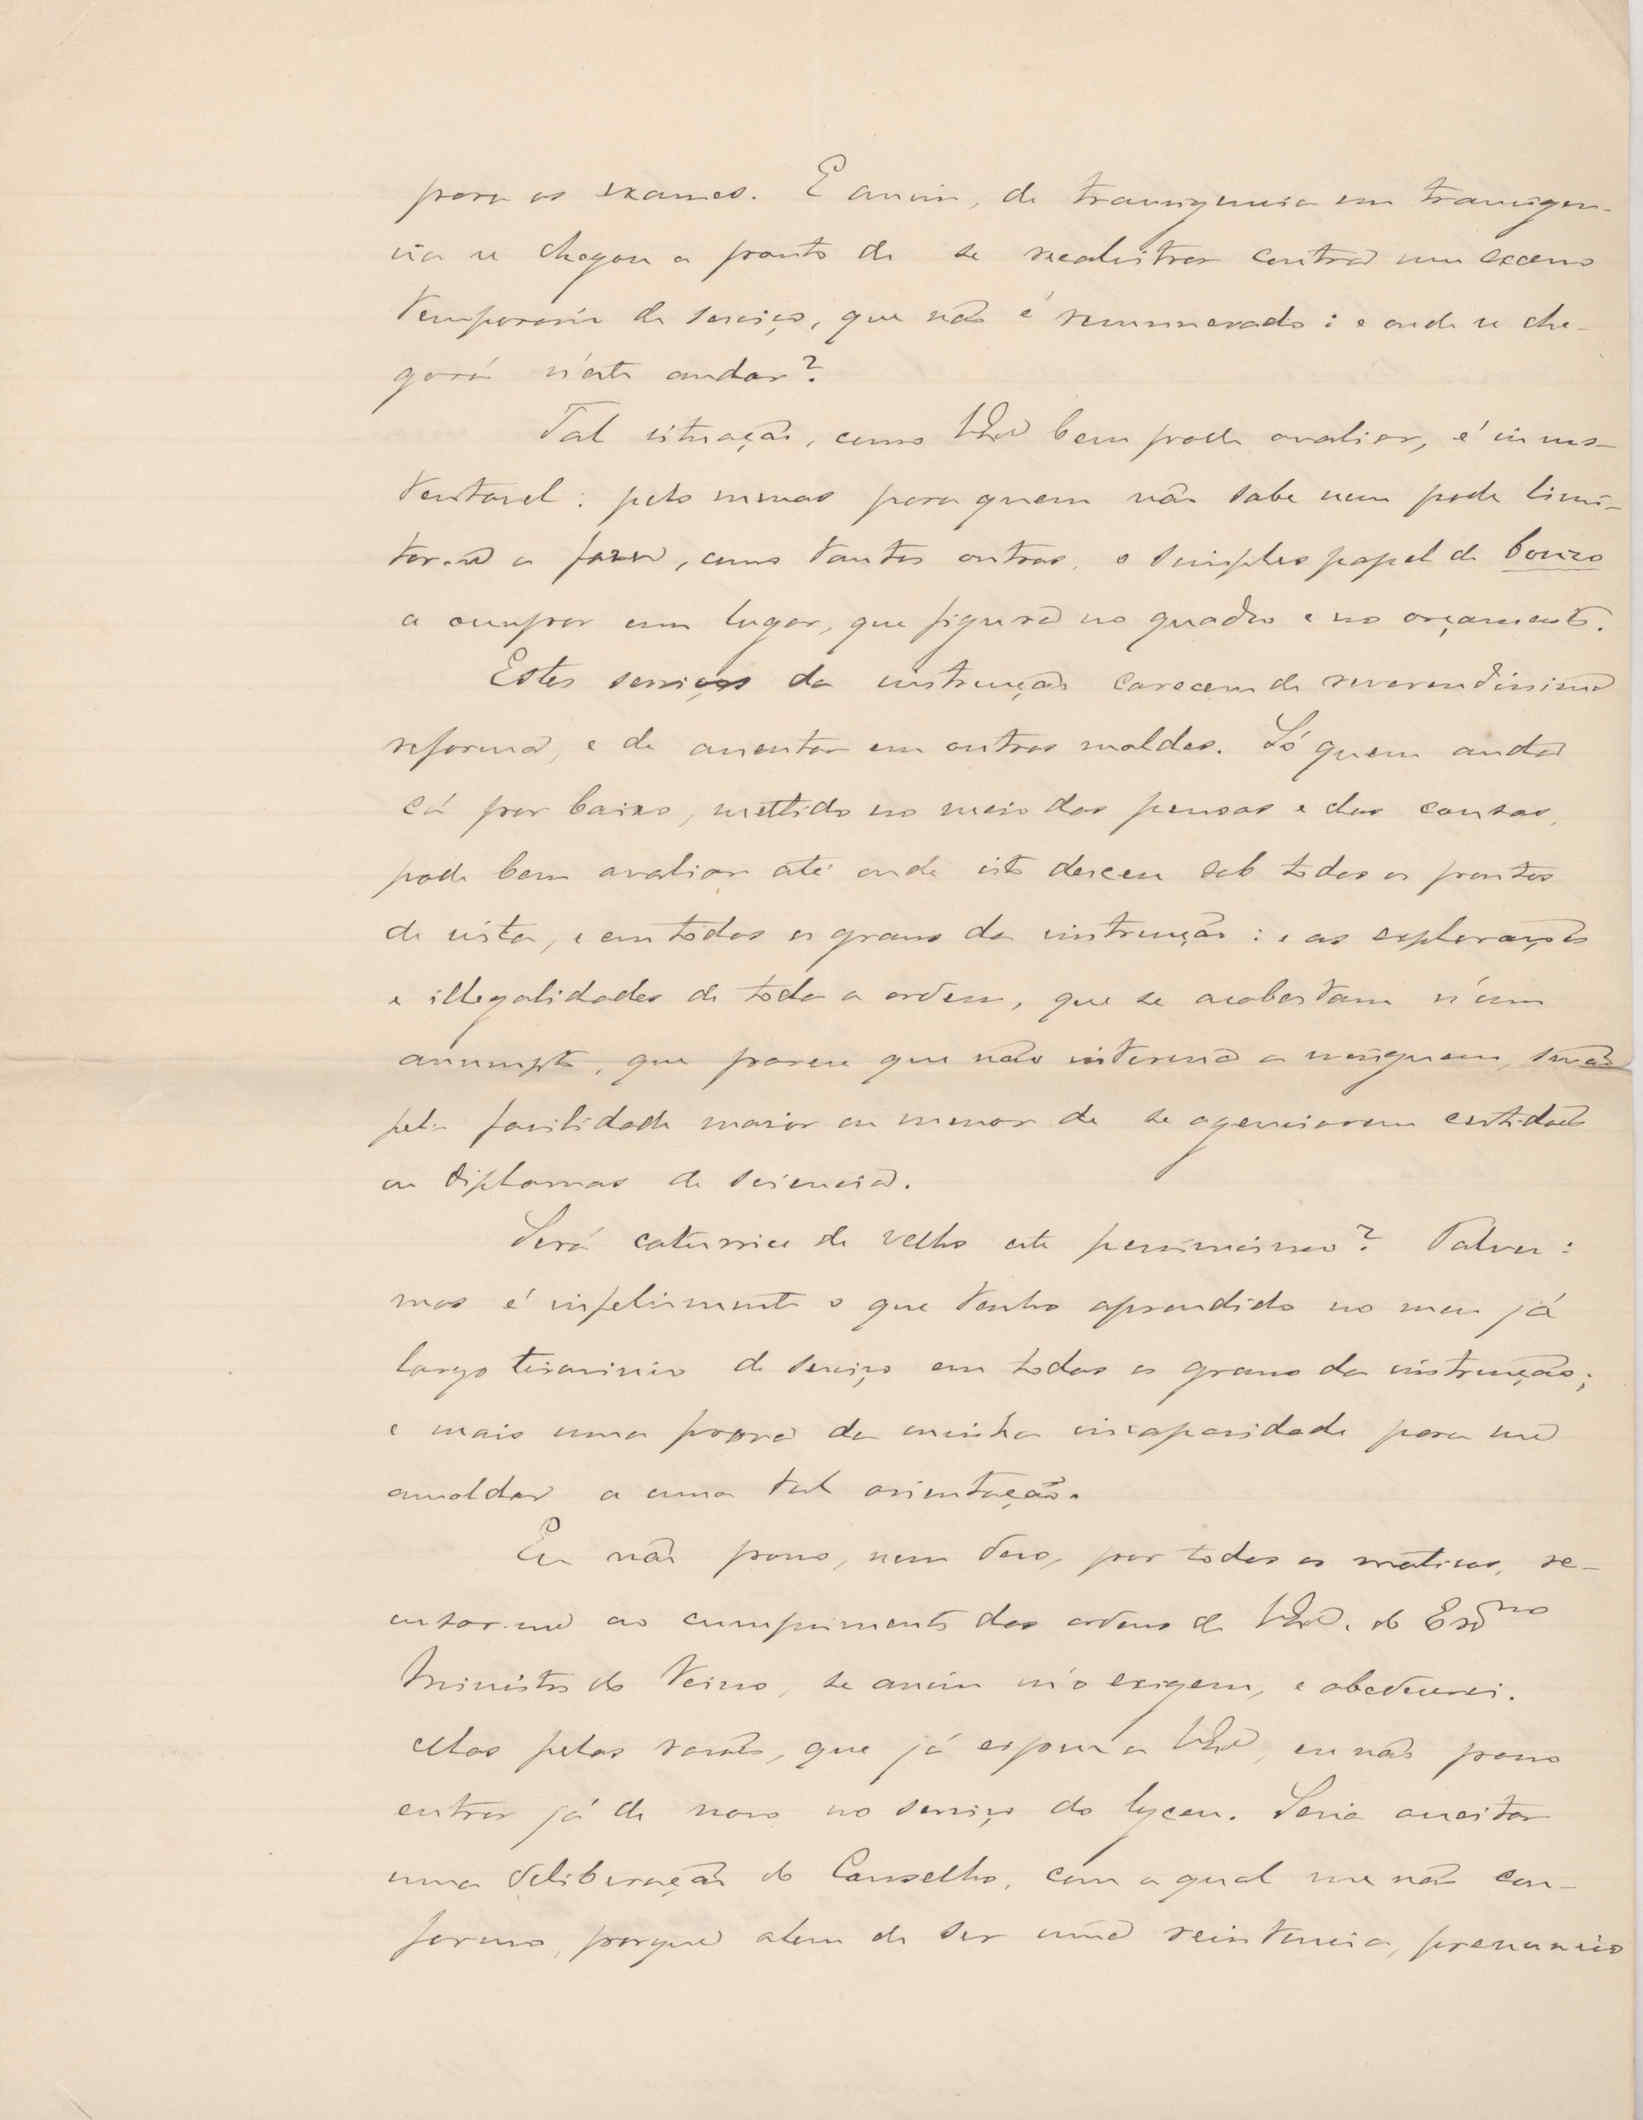 para os exames. E assim, de transigencia em transigen-
cia se chegou a ponto de se recalcitrar contra um excesso
temporario de serviço, que não é remunerado: e onde se che-
gará n'este andar?
Tal situação, como V. Exª bem pode avaliar, é insus-
tentavel: pelo menos para quem não sabe nem pode limi-
tar-se a fazer, como tantos outros, o simples papel de bonzo
a occupar um lugar, que figura no quadro e no orçamento.
Estes serviços da instrucção carecem de reverendissima
reforma, e de assentar em outros moldes. Só quem anda
cá por baixo, mettido no meio das pessoas e das cousas,
pode bem avaliar até onde isto desceu sob todos os pontos
de vista, e em todos os graus da instrucção: e as explorações
e illegalidades de toda a ordem, que se acobertam n'um
assumpto, que parece que não interessa a ninguem, senão
pela facilidade maior ou menor de se agenciarem certidões
ou diplomas de sciencia.
Será caturrice de velho este pessimismo? Talvez:
mas é infelizmente o que tenho aprendido no meu já
largo tirocinio de serviço em todos os graus da instrucção;
e mais uma prova da minha incapacidade para me
amoldar a uma tal orientação.
Eu não posso, nem devo, por todos os motivos, re-
cusar-me ao cumprimento das ordens de V. Exª. e do Exmo
Ministro do Reino, se assim m'o exigem, e obedecerei.
Mas pelas rasões, que já expuz a V. Exª, eu não posso
entrar já de novo no serviço do lyceu. Seria acceitar
uma deliberação do Conselho, com a qual me não con-
formo, porque alem de ser uma reintencia, prenuncio